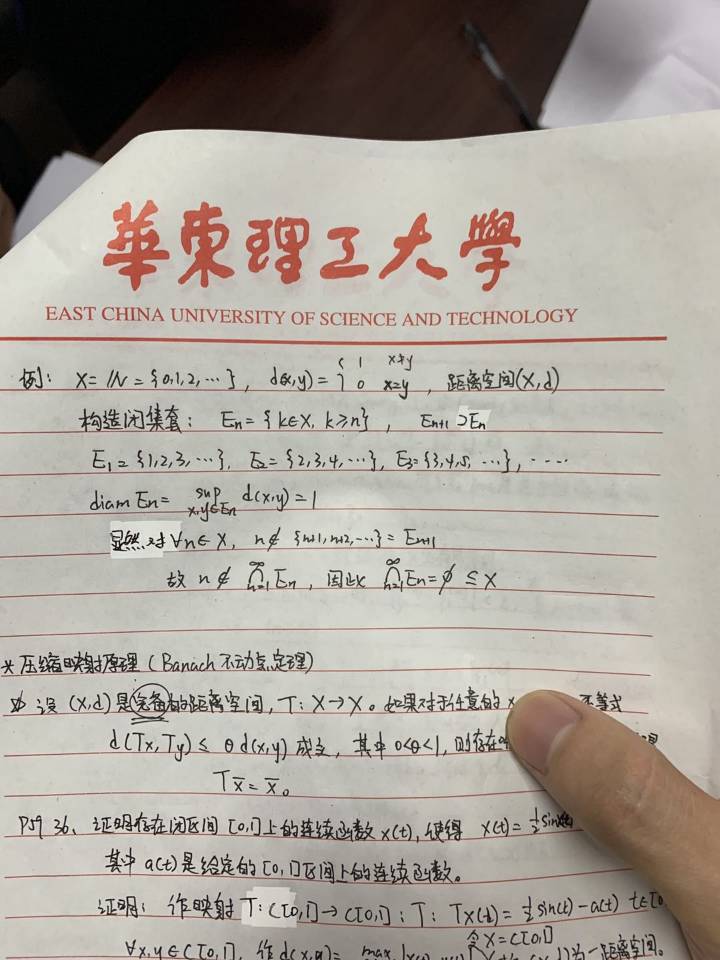 華東理工大學
EAST CHINA UNIVERSITY OF SCIENCE AND TECHNOLOGY
例: X=ℕ={0,1,2,…}, d(x,y)={1 x≠y
0 x=y, 距离空间(X,d)
构造闭集套: En={k∈X, k≥n}, En+1⊃En
E1={1,2,3,…}, E2={2,3,4,…}, E3={3,4,5,…}, ……
diam En= sup x,y∈En d(x,y)=1
显然对∀n∈X, n∉{n+1,n+2,…}=En+1
故 n∉ ∞∩n=1 En, 因此 ∞∩n=1 En=∅⊆X
*压缩映射原理(Banach不动点定理)
设(X,d)是完备的距离空间, T: X→X。如果对于任意的x 不等式
d(Tx,Ty)≤θd(x,y)成立, 其中0<θ<1, 则存在
Tx̄=x̄。
P59 36、证明存在闭区间[0,1]上的连续函数x(t), 使得 x(t)=½sin
其中a(t)是给定的[0,1]区间上的连续函数。
证明: 作映射T: C[0,1]→C[0,1]: T: Tx(t)=½sin(t)-a(t) t∈[0
令X=C[0,1]
∀x,y∈C[0,1], 作d(x,y)= max 为一距离空间。